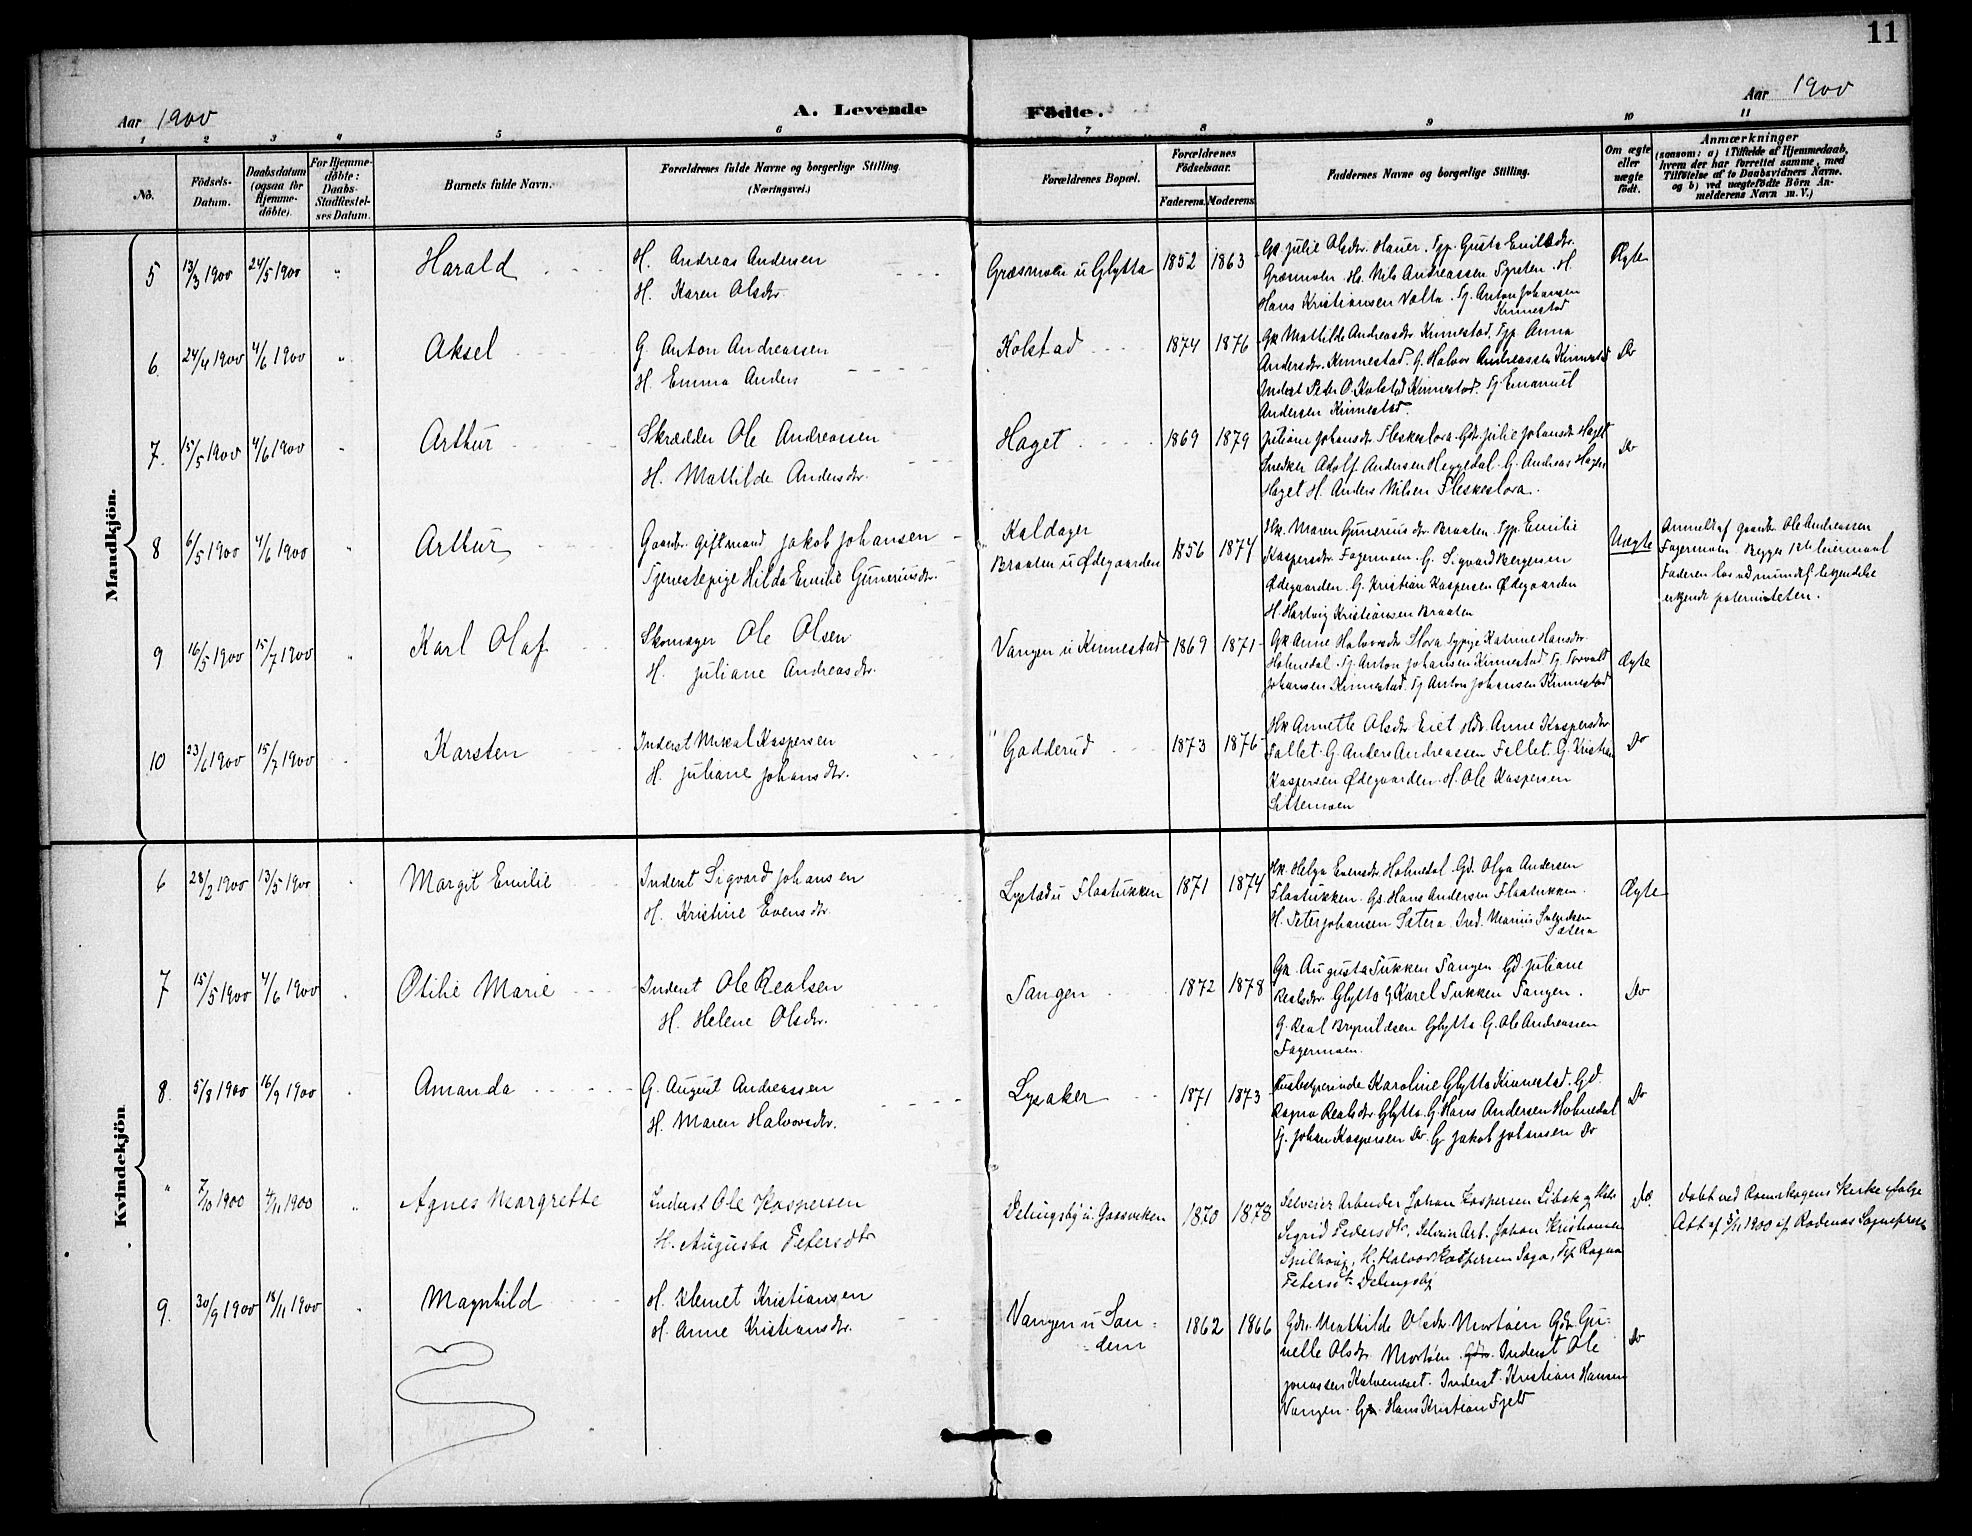 11
Aar 1900
A. Levende Födte.
Aar 1900
1 2 3 4 5 6 7 8 9 10 11
No.
Födsels-Datum.
Daabsdatum (ogsaa for Hjemme-döbte).
For Hjemme-döbte: Daabs-Stadfæstel-ses Datum.
Barnets fulde Navn.
Forældrenes fulde Navne og borgerlige Stilling.
(Næringsvei.)
Forældrenes Bopæl.
Forældrenes Födselsaar.
Faderens. Moderens.
Faddernes Navne og borgerlige Stilling.
Om ægte eller uægte födt.
Anmærkninger
(saasom: a) i Tilfælde af Hjemmedaab,
hvem der har forrettet samme, med
Tilföielse af to Daabsvidners Navne.
og b) ved uægtefödte Börn An-
melderens Navn m. V.)
Mandkjön.
5 13/3 1900 24/5 1900 " Harald
H. Andreas Andersen
H. Karen Olsdtr.
Græsmoen u Glytta 1852 1863
Gk. Julie Olsdtr. Hauer. Tjp. Gusta Emilsdtr.
Græsmoen. H. Nils Andreassen Tyreten. H.
Hans Kristiansen Valta. Tj. Anton Johansen
Kinnestad
Ægte
6. 24/4 1900 4/6 1900 " Aksel
G. Anton Andreassen
H. Emma Anders
Kolstad 1874 1876
Gk Mathilde Andreasdtr Kinnestad. Tjp. Anna
Andersdtr. Kinnestad. G. Halvor Andreassen Kinnestad
Inderst Peder O. Kolstad Kinnestad. Tj. Emanuel
Andersen Kinnestad.
Do
7. 15/5 1900 4/6 1900 " Arthur
Skrædder Ole Andreassen
H. Mathilde Andersdtr.
Haget 1869 1879
Juliane Johansdtr. Fleskestora. Gdr. Julie Johansdtr Haget
Snedker Adolf Andersen Heggedal. G. Andreas
Haget H. Anders Nilsen Fleskestora.
Do
8 6/5 1900 4/6 1900 " Arthur
Gaardbr. giftmand Jakob Johansen
Tjenestepige Hilda Emilie Guneriusdtr.
Kaldager
Braaten u Ødegaarden 1856 1874
Hk. Maren Guneriusdtr Braaten. Tjp. Emilie
Kaspersdtr. Fagermoen. G. Sigvard Bergersen
Ødegaarden. G. Kristian Kaspersen Ødegaarden
H. Hartvig Kristiansen Braaten
Uægte
Anmeldt af gaardbr. Ole Andreassen
Fagermoen. Begges 1ste leiermaal
Faderen los ved mundtl. bekjendelse
erkjende paterniteten.
9 16/5 1900 15/7 1900 " Karl Olaf
Skomager Ole Olsen
H. Juliane Andreasdtr.
Vangen u Kinnestad 1869 1871
Gk Anne Halvorsdtr Stora Tjpige Katrine Hansdtr
Holmedal. Tj. Anton Johansen Kinnestad Tj. Torvald
Johansen Kinnestad. Tj Anton Johansen Kinnestad
Ægte
10 23/6 1900 15/7 1900 Karsten
Inderst Mikal Kaspersen
H. Juliane Johansdtr.
" Gadderud 1873 1876
Hk Annette Olsdtr Eiet Anne Kaspersdtr
Fallet. G. Anders Andreassen Fallet. G. Kristian
Kaspersen Ødegaarden. H. Ole Kaspersen
Do
Kvindekjön
6 28/2 1900 13/5 1900 Margit Emilie
Inderst Sigvard Johansen
H. Kristine Evensdtr
Lystad u Flaatukken 1871 1874
Hk. Helga Evensdtr Holmedal. Gd. Olga Andersen
Flaatukken. Gs. Hans Andersen Flaatukken.
H. Peter Johansen Sætera. Ind. Marius Svendsen
Sætera
Ægte
7 15/5 1900 4/6 1900 Otilie Marie
Inderst Ole Realsen
H. Helene Olsdtr.
Tangen 1872 1878
Gk. Augusta Tukken Tangen Gd. Juliane
Realsdtr. Glytta G. Karel Tukken Tangen.
G. Real Brynildsen Glytta G. Ole Andreassen
Fagermoen.
Do
8. 5/8 1900 16/9 1900 Amanda
G. August Andreassen
H. Maren Halvorsdtr.
Lysaker 1871 1873
Husbestyrerinde Karoline Glytta Kinnestad. Gd.
Ragna Realsdtr Glytta. G. Hans Andersen Holmedal
G. Johan Kaspersen Do. G Jakob Johansen Do
Do
" 7/10 1900 4/11 1900 " Agnes Margrethe
Inderst Ole Kaspersen
H. Augusta Petersdtr
Delingsby u. Gaasviken 1870 1878
Selveier Arbeider Johan Kaspersen
Sigrid Pedersdtr, Selveier Arb. Johan Kristiansen
H. Halvor Kaspersen Tj.p. Ragna
Petersdtr. Delingsby
Do.
Døbt ved Rømskogens Kirke ifølge
Att af 5/11 1900 af Rødenæs Sognepræst
9. 30/9 1900 18/11 1900 " Magnhild
H. Klemet Kristiansen
H. Anne Kristiansdtr.
Vangen u San-
dem 1862 1866
Gdr. Mathilde Olsdtr. Mortøen Gdr. Gu-
nelle Olsdtr Mortøen. Inderst Ole
Jonassen Kalvenæset. Inderst. Kristian Hansen
Vangen. G. Hans Kristian Fjeld
Do